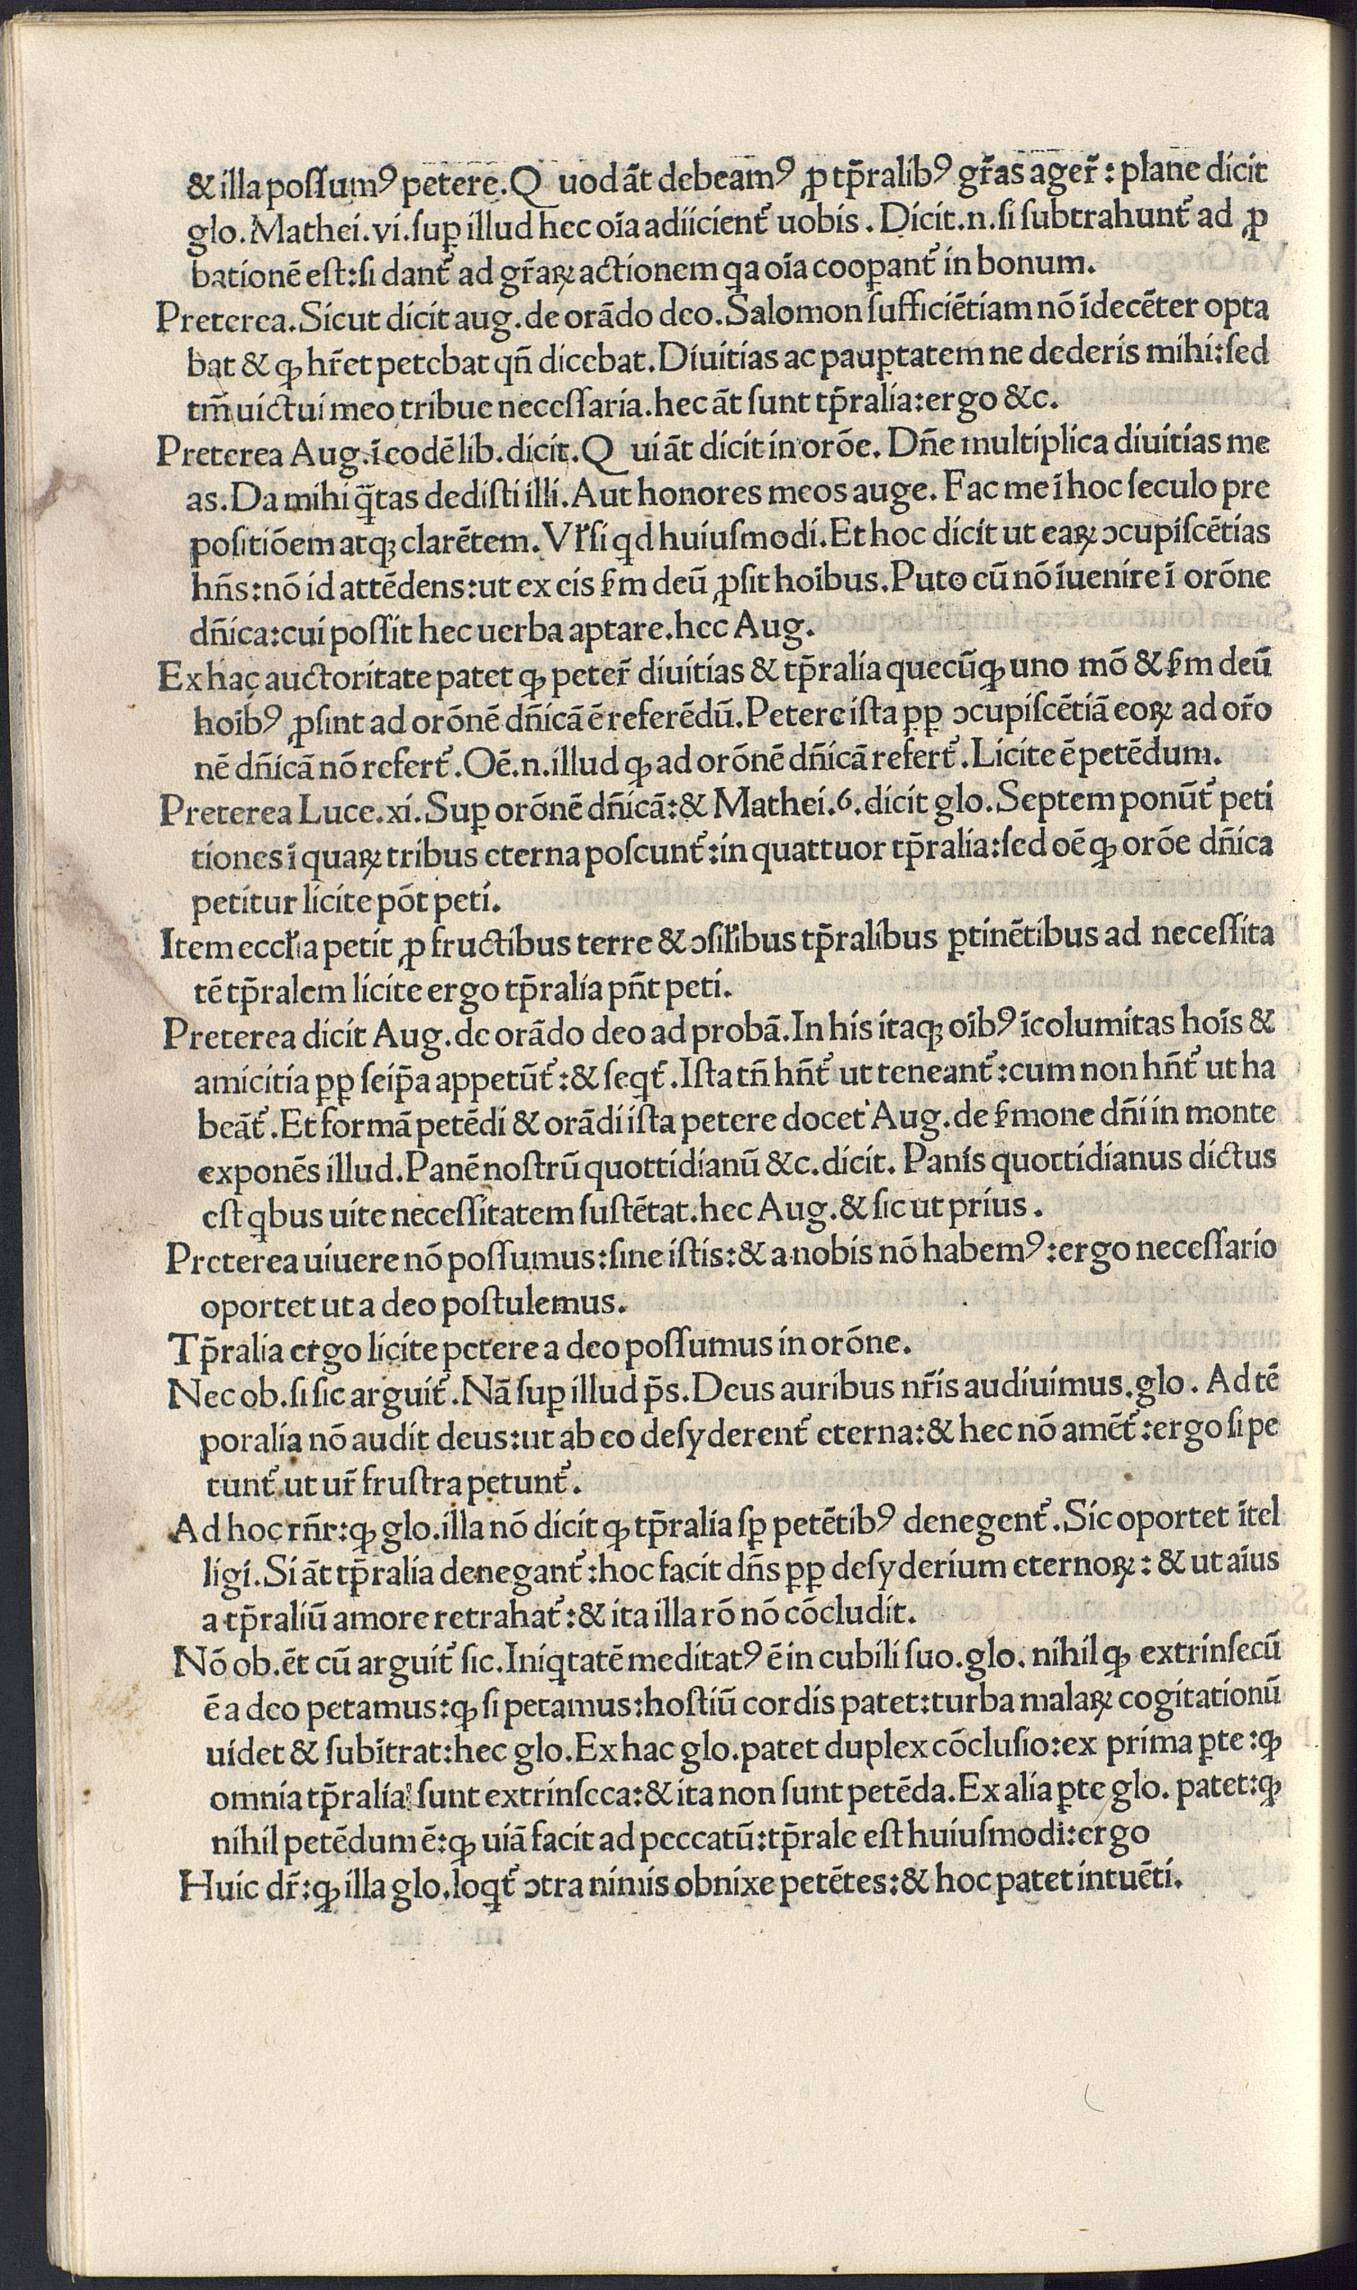 & illa possumꝰ petere. Q uod āt debeamꝰ ꝓ tp̄ralibꝰ gr̄as ager̄: plane dicit
glo. Mathei. vi. suꝑ illud hec oīa adiicient᷑ uobis. Dicit. n. si subtrahunt᷑ ad ꝓ
bationē est: si dant᷑ ad gr̄aꝝ actionem qa oīa cooꝑant᷑ in bonum.
Preterea. Sicut dicit aug. de orādo deo. Salomon sufficiētiam nō īdecēter opta
bat & ꝙ hr̄et petebat qn̄ dicebat. Diuitias ac pauꝑtatem ne dederis mihi: sed
tm̄ uictui meo tribue necessaria. hec āt sunt tp̄ralia: ergo &c.
Preterea Aug. ī eodē lib. dicit. Q ui āt dicit in orōe. Dn̄e multiplica diuitias me
as. Da mihi q̄tas dedisti illi. Aut honores meos auge. Fac me ī hoc seculo pre
positiōem atqꝫ clarētem. Vl̄ si qd huiusmodi. Et hoc dicit ut eaꝝ ↄcupiscētias
hn̄s: nō id attēdens: ut ex eis s̄m deū ꝓsit hoībus. Puto eū nō īuenire ī orōne
dn̄ica: cui possit hec uerba aptare. hec Aug.
Ex hac auctoritate patet ꝙ peter̄ diuitias & tp̄ralia quecūqꝫ uno mō & s̄m deū
hoībꝰ ꝓsint ad orōnē dn̄icā ē referēdū. Petere ista ꝑꝑ ↄcupiscētiā eoꝝ ad or̄o
nē dn̄icā nō refert᷑. Oē. n. illud ꝙ ad orōnē dn̄icā refert᷑. Licite ē petēdum.
Preterea Luce. xi. Suꝑ orōnē dn̄icā: & Mathei. 6. dicit glo. Septem ponūt᷑ peti
tiones ī quaꝝ tribus eterna poscunt᷑: in quattuor tp̄ralia: sed oē ꝙ orōe dn̄ica
petitur licite pōt peti.
Item eccl̄ia petit ꝓ fructibus terre & ↄsil̄ibus tp̄ralibus ꝑtinētibus ad necessita
tē tp̄ralem licite ergo tp̄ralia pn̄t peti.
Preterea dicit Aug. de orādo deo ad probā. In his itaqꝫ oībꝰ īcolumitas hoīs &
amicitia ꝑꝑ seip̄a appetūt᷑: & seqt᷑. Ista tn̄ hn̄t᷑ ut teneant᷑: cum non hn̄t᷑ ut ha
beāt᷑. Et formā petēdi & orādi ista petere docet Aug. de s̄mone dn̄i in monte
exponēs illud. Panē nostrū quottidianū &c. dicit. Panis quottidianus dictus
est qbus uite necessitatem sustētat. hec Aug. & sic ut prius.
Preterea uiuere nō possumus: sine istis: & a nobis nō habemꝰ: ergo necessario
oportet ut a deo postulemus.
Tp̄ralia ergo licite petere a deo possumus in orōne.
Nec ob. si sic arguit᷑. Nā suꝑ illud p̄s. Deus auribus nr̄is audiuimus. glo. Ad tē
poralia nō audit deus: ut ab eo desyderent᷑ eterna: & hec nō amēt᷑: ergo si pe
tunt᷑ ut ur̄ frustra petunt᷑.
Ad hoc rn̄r: ꝙ glo. illa nō dicit ꝙ tp̄ralia sꝑ petētibꝰ denegent᷑. Sic oportet ītel
ligi. Si āt tp̄ralia denegant᷑: hoc facit dn̄s ꝑꝑ desyderium eternoꝝ: & ut aīus
a tp̄raliū amore retrahat᷑: & ita illa rō nō cōcludit.
Nō ob. ēt cū arguit᷑ sic. Iniqtatē meditatꝰ ē in cubili suo. glo. nihil ꝙ extrinsecū
ē a deo petamus: ꝙ si petamus: hostiū cordis patet: turba malaꝝ cogitationū
uidet & subītrat: hec glo. Ex hac glo. patet duplex cōclusio: ex prima ꝑte: ꝙ
omnia tp̄ralia sunt extrinseca: & ita non sunt petēda. Ex alia ꝑte glo. patet: ꝙ
nihil petēdum ē: ꝙ uiā facit ad peccatū: tp̄rale est huiusmodi: ergo
Huic dr̄: ꝙ illa glo. loqt᷑ ↄtra nimis obnixe petētes: & hoc patet intuēti.